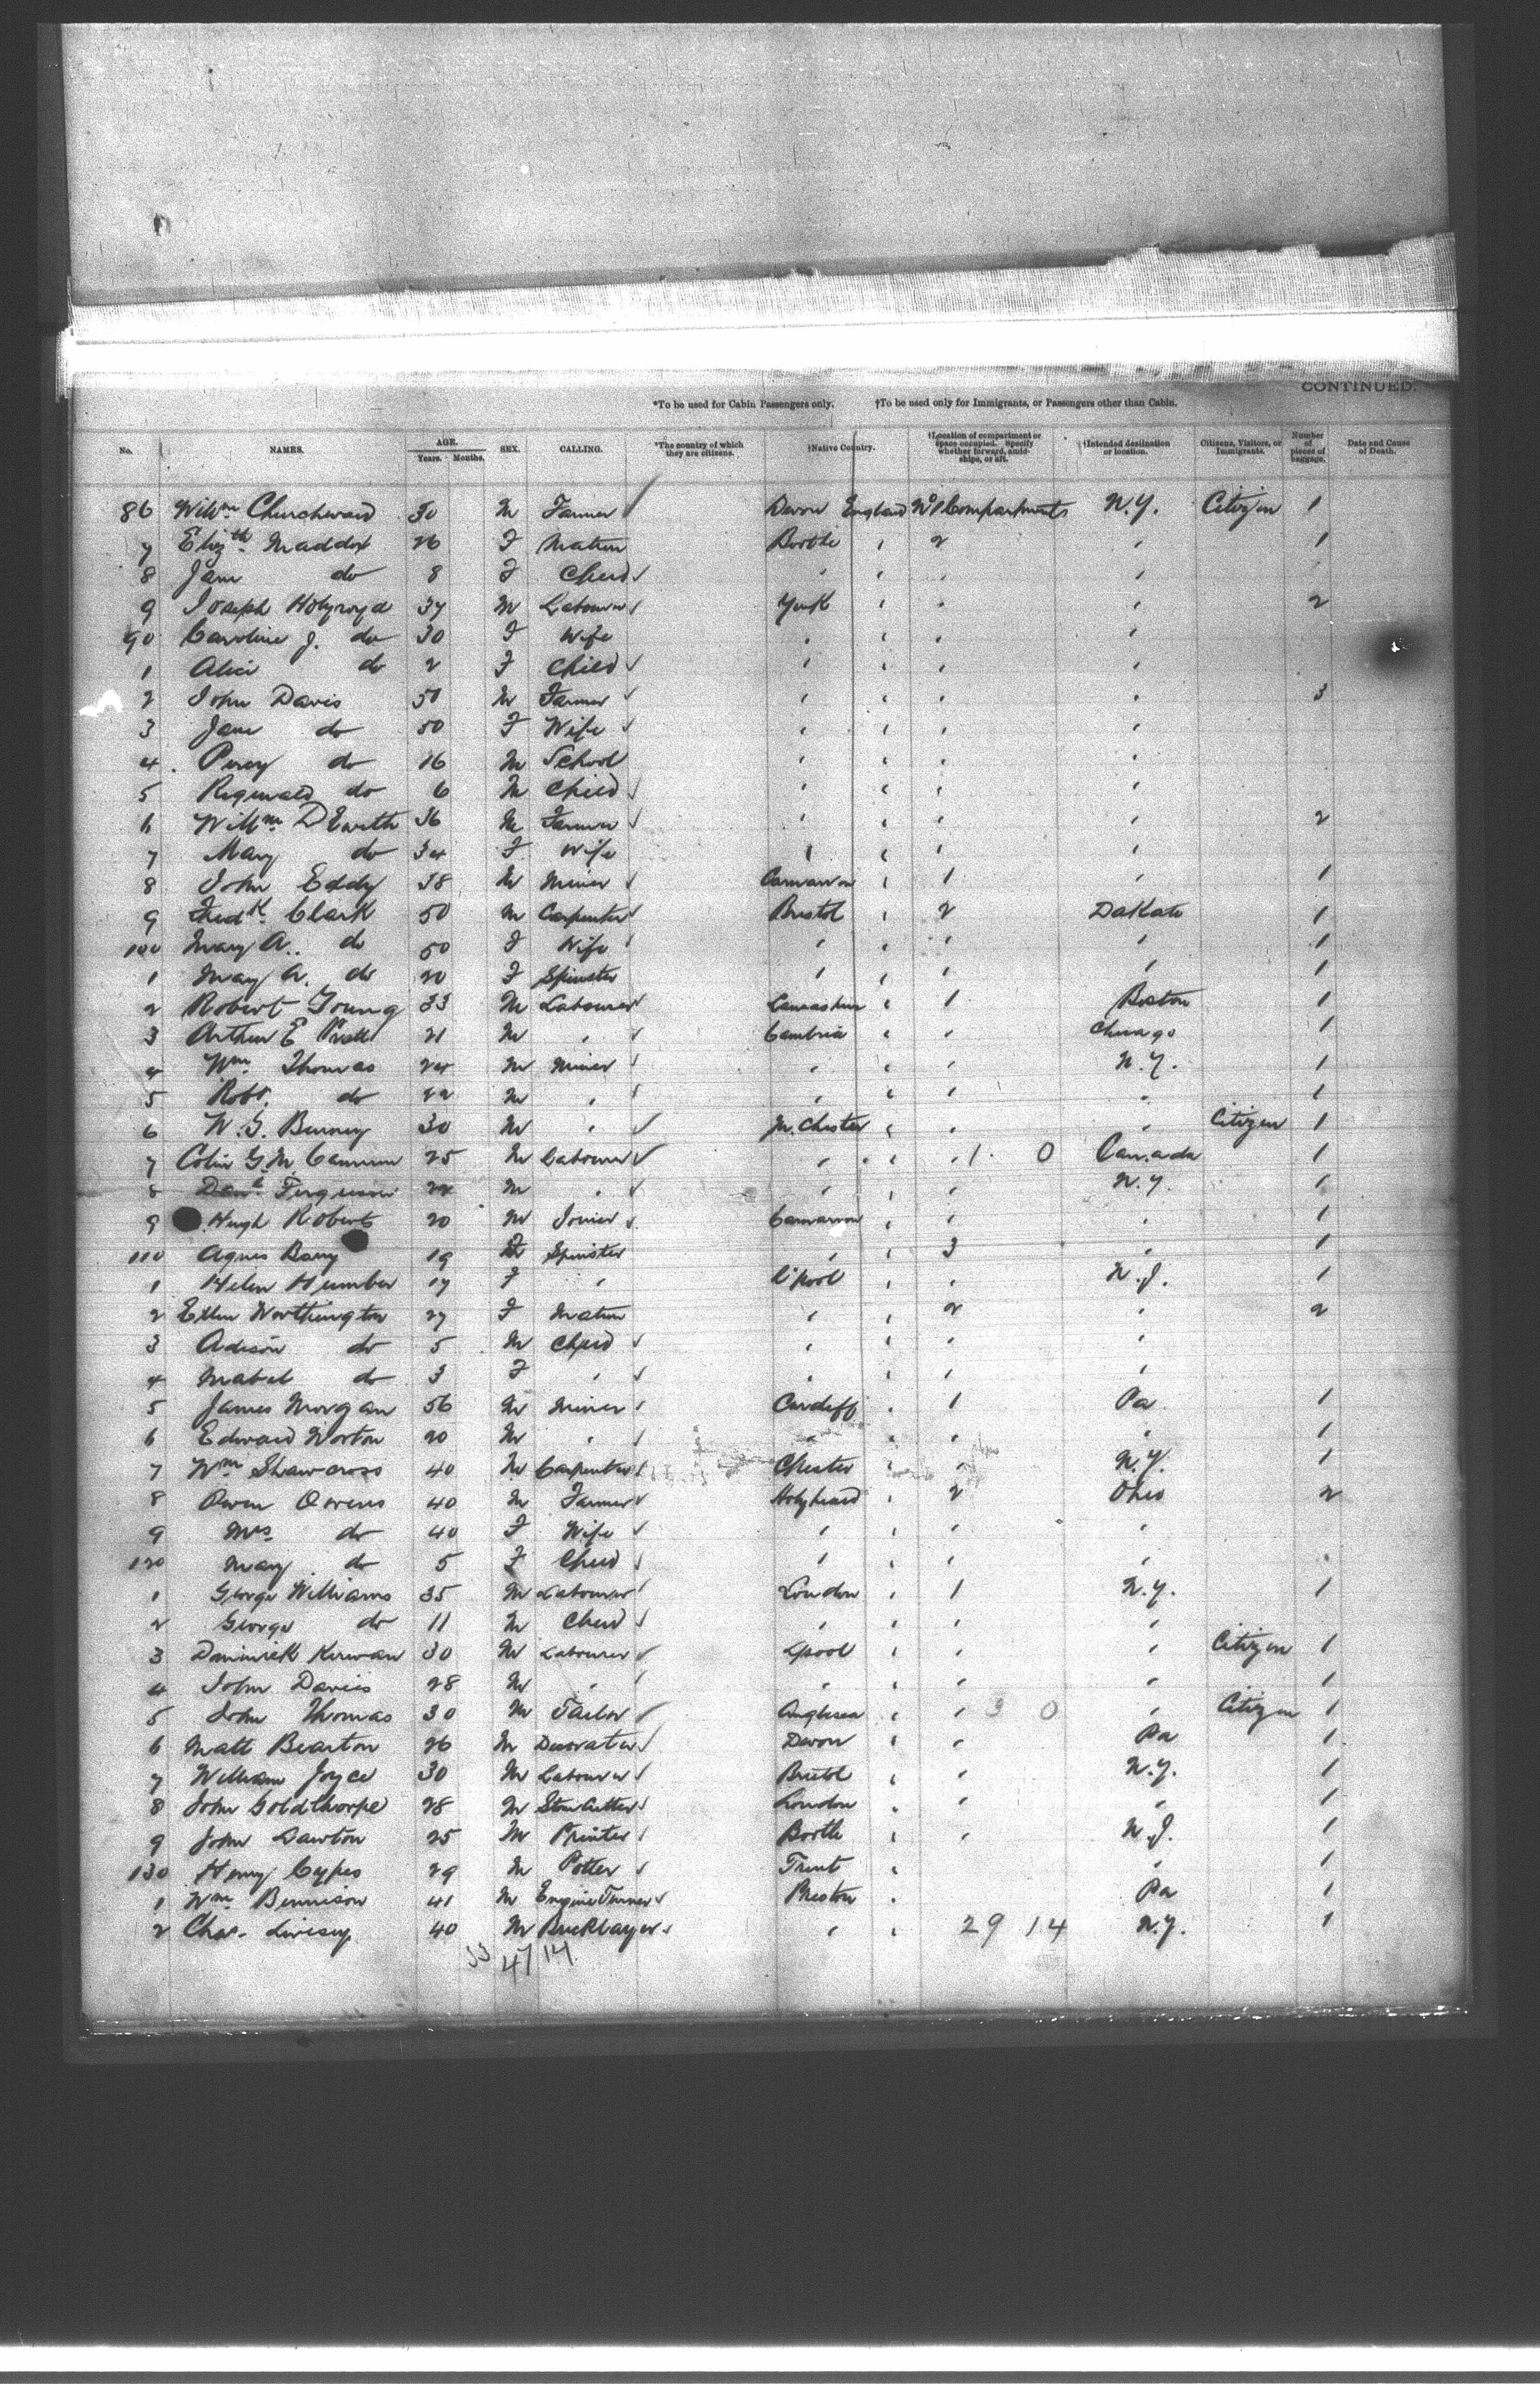 CONTINUED.
*To be used for Cabin Passengers only. †To be used only for Immigrants, or Passengers other than Cabin.
No. NAMES. AGE. Years. Months. SEX. CALLING. *The country of which they are citizens. †Native Country. †Location of compartment or space occupied. Specify whether forward, amidships, or aft. †Intended destination or location. Citizens, Visitors, or Immigrants. Number of pieces of baggage. Date and Cause of Death.
86 Willm Churchward 30 M Farmer Devon England No 1 Compartments N.Y. Citizen 1
7 Elizth Maddox 26 F Matron Bootle " 2 " 1
8 Jane do 8 F Child " " " "
9 Joseph Holyroyd 37 M Labourer York " " " 2
90 Caroline J. do 30 F Wife " " " "
1 Alice do 2 F Child " " " "
2 John Davis 50 M Farmer " " " " 3
3 Jane do 50 F Wife " " " "
4 Percy do 16 M School " " " "
5 Reginald do 6 M Child " " " "
6 Willm 36 M Farmer " " " " 2
7 Mary do 34 F Wife " " " "
8 John Eddy 38 M Miner Carnarvon " 1 " 1
9 Fredk Clark 50 M Carpenter Bristol " 2 Dakato 1
100 Mary A. do 50 F Wife " " " " 1
1 May A. do 20 F Spinster " " " " 1
2 Robert Young 33 M Labourer Lancashire " 1 Boston 1
3 Arthur E 21 M " Cambria " " Chicago 1
4 Wm Thomas 24 M Miner " " " N.Y. 1
5 Robt. do 22 M " " " " " 1
6 W. G. 30 M " M.Chester " " " Citizen 1
7 Colin G. M. Cameron 25 M Labourer " " " 1 0 Canada 1
8 Danl Ferguson 22 M " " " " N.Y. 1
9 Hugh Roberts 20 M Joiner Carnarvon " " " 1
110 Agnes Barry 19 F Spinster " " 3 " 1
1 Helen Humber 17 F " L'pool " " N.J. 1
2 Ellen Worthington 27 F Matron " " 2 " 2
3 Adison do 5 M Child " " " "
4 Mabel do 3 F " " " " "
5 James Morgan 56 M Miner Cardiff " 1 Pa 1
6 Edward Norton 20 M " " " " " 1
7 Wm Shawcross 40 M Carpenter Chester " " N.Y. 1
8 Owen Owens 40 M Farmer Holyhead " 2 Ohio 2
9 Mrs do 40 F Wife " " " "
120 Mary do 5 F Child " " " "
1 George Williams 35 M Labourer London " 1 N.Y. 1
2 George do 11 M Child " " " "
3 Dominick Kirwan 30 M Labourer Lpool " " " Citizen 1
4 John Davies 28 M " " " " " 1
5 John Thomas 30 M Tailor Anglesea " " 3 0 " Citizen 1
6 Matt Bearton 26 M Decorator Devon " " Pa 1
7 William Joyce 30 M Labourer Bristol " " N.Y. 1
8 John Goldthorpe 28 M Stone Cutter London " " " 1
9 John Dawton 25 M Printer Bootle " " N.J. 1
130 Henry Cypes 29 M Potter Trent " " 1
1 Wm Bennison 41 M Engine Turner Preston " Pa 1
2 Chas. Livesey 40 M Bricklayer " " 29 14 N.Y. 1
33 47 14